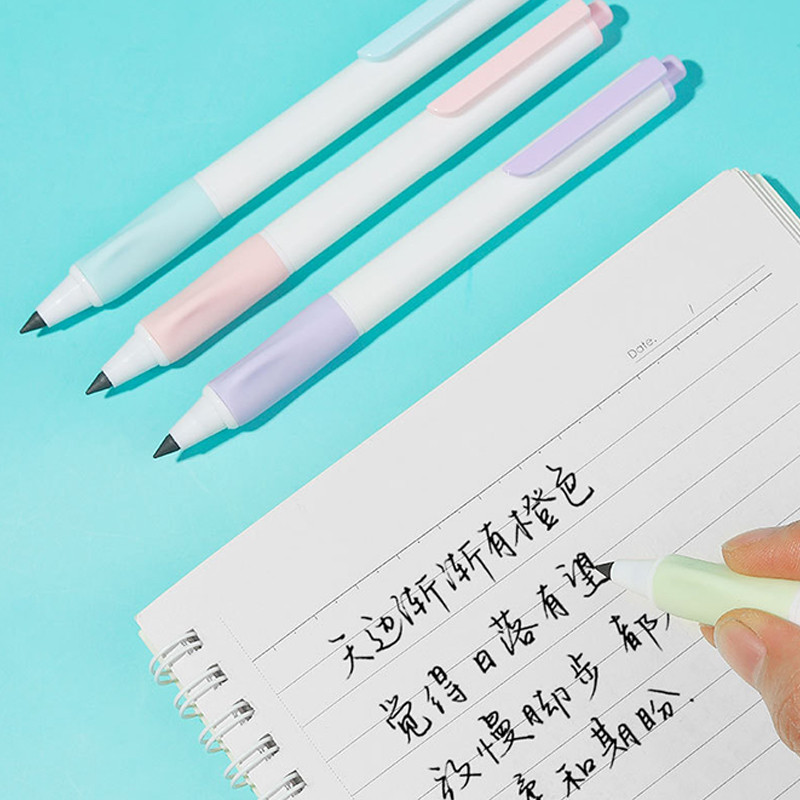 Date. /
天边渐渐有橙色
觉得日落有望
放慢脚步 都
和期盼.